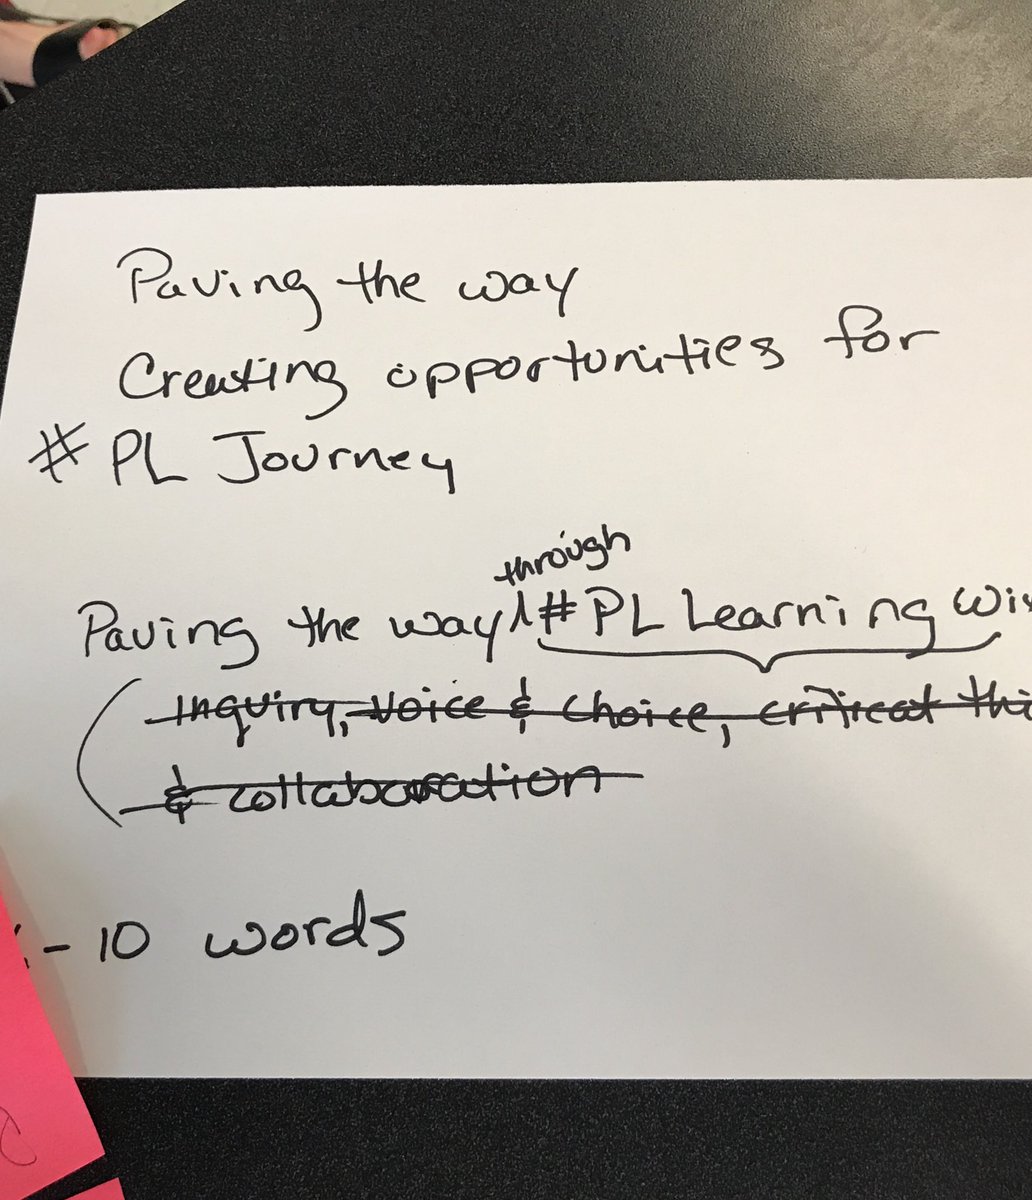 Paving the way
Creating opportunities for
# PL Journey
through
Paving the way, #PL Learning
Inquiry, Voice & Choice, critical
& collaboration
- 10 words